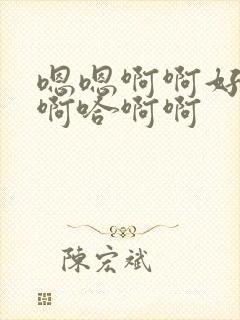 嗯嗯啊啊好
啊哈啊啊
陳宏斌